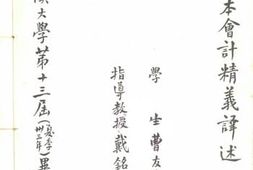 本會計精義譯述
學生曹友
指導教授戴銘
大學第十三屆(卅三年夏季)畢